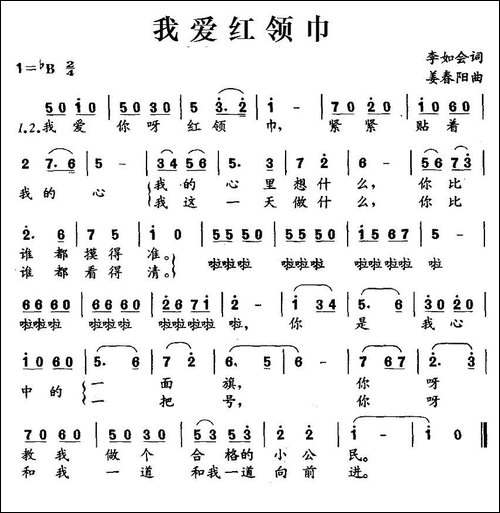 我爱红领巾
1=♭B 2/4
李如会词
姜春阳曲
5 0 i 0 | 5 0 3 0 | 5 3. 2 | i - | 7 0 2 0 | i 0 6 0 |
1.2.我 爱 你 呀 红 领 巾, 紧 紧 贴 着
2 7. 6 | 5 - | 3 4 5 6 | 5. 3 | 7 2 | 6 - | 5 6 7 3 |
我 的 心 我 的 心 里 想 什 么, 你 比
我 这 一 天 做 什 么, 你 比
2. 6 | 7 5 | i 0 | 5 5 5 0 | 5 5 5 0 | i 5 6 7 | 5 - |
谁 都 摸 得 准。 啦啦啦 啦啦啦 啦啦啦啦 啦
谁 都 看 得 清。
6 6 6 0 | 6 6 6 0 | 2 6 7 i | 2 - | i 3 4 | 5. 6 | 3 0 2 0 |
啦啦啦 啦啦啦 啦啦啦啦 啦, 你 是 我 心
i 0 6 0 | 5. 6 | 7 2 | 6. 5 | 6 - | 7 6 7 | 2. 3 |
中 的 一 面 旗, 你 呀
一 把 号, 你 呀
7 0 6 0 | 5 0 3 0 | 5 3 5 3 | 0 5 3 | 2 2 | i - | i 0 ‖
教 我 做 个 合 格的 小 公 民。
和 我 一 道 和我 一道 向 前 进。